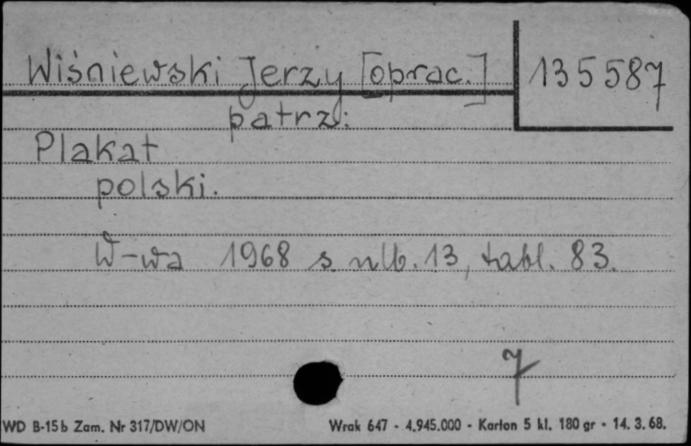 Wiśniewski Jerzy [oprac.] 135587
patrz:
Plakat
polski.
W-wa 1968 s. nlb. 13, tabl. 83.
7
WD B-15b Zam. Nr 317/DW/ON Wrak 647 - 4.945.000 - Karton 5 kl. 180 gr - 14. 3. 68.